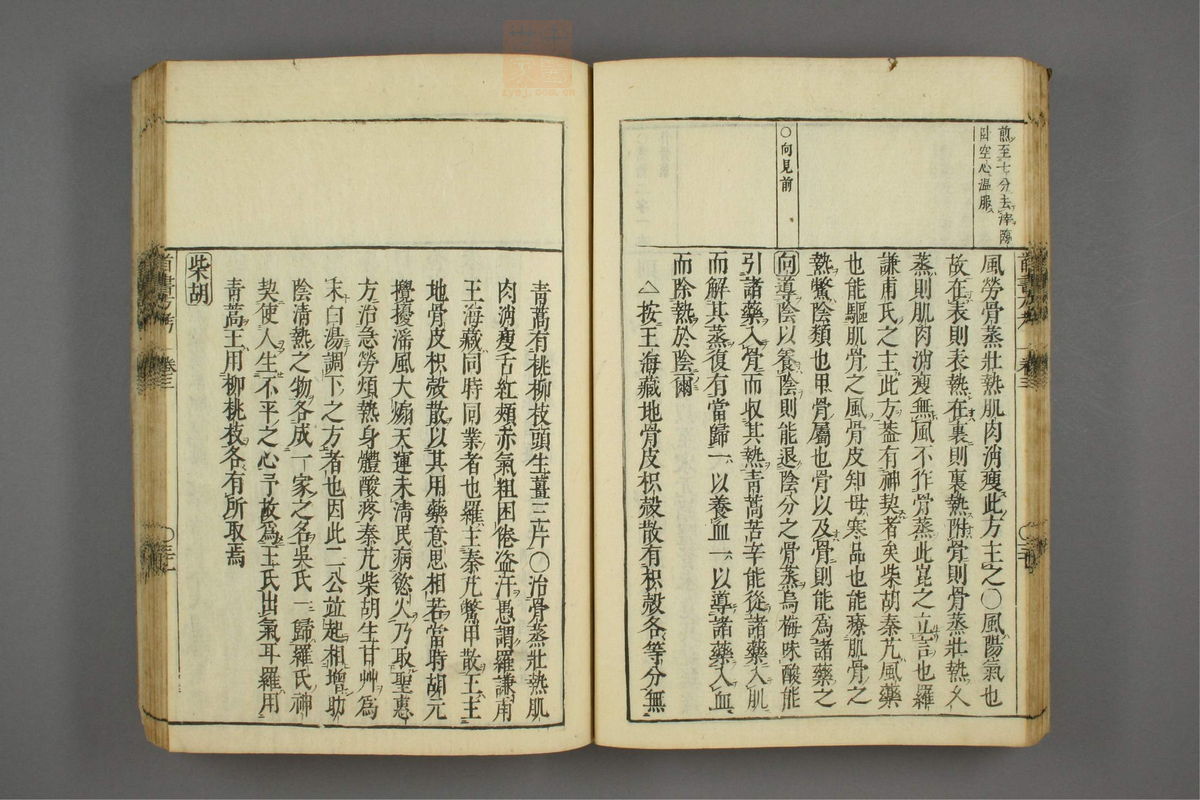 煎至七分去滓臨
臥空心溫服
○向見前
風勞骨蒸壯熱肌肉消瘦此方主之○風陽氣也
故在表則表熱在裏則裏熱附骨則骨蒸壯熱久
蒸則肌肉消瘦無風不作骨蒸此崑之立言也羅
謙甫氏之主此方蓋有神契者矣柴胡秦艽風藥
也能驅肌骨之風骨皮知母寒品也能療肌骨之
熱鱉陰類也甲骨屬也骨以及骨則能爲諸藥之
向導陰以養陰則能退陰分之骨蒸烏梅味酸能
引諸藥入骨而收其熱青蒿苦辛能從諸藥入肌
而解其蒸復有當歸一以養血一以導諸藥入血
而除熱於陰爾
△按王海藏地骨皮枳殼散有枳殼各等分無
青蒿有桃柳枝頭生薑三片○治骨蒸壯熱肌
肉消瘦舌紅頰赤氣粗困倦盗汗愚謂羅謙甫
王海藏同時同業者也羅主秦艽鱉甲散王主
地骨皮枳殼散以其用藥意思相若當時胡元
攪擾滛風大煽天運未清民病慾火乃取聖惠
方治急勞煩熱身體酸疼秦艽柴胡生甘艸爲
末白湯調下之方者也因此二公並起相增助
陰清熱之物各成一家之名吳氏一歸羅氏神
契使人生不平之心予故爲王氏出氣耳羅用
青蒿王用柳桃枝各有所取焉
柴胡
首書方考
卷三